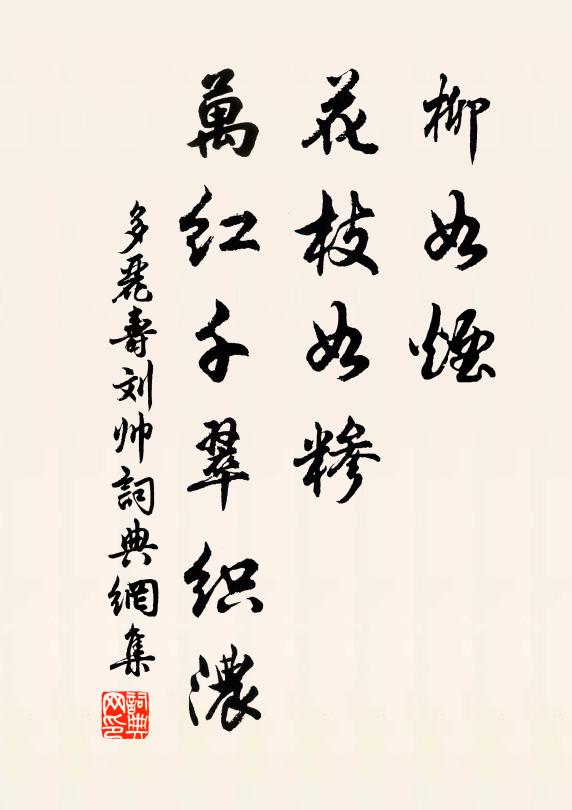 柳如煙
花枝如糁
萬红千翠织濃
多麗壽刘帅詞典網集
詞典网印